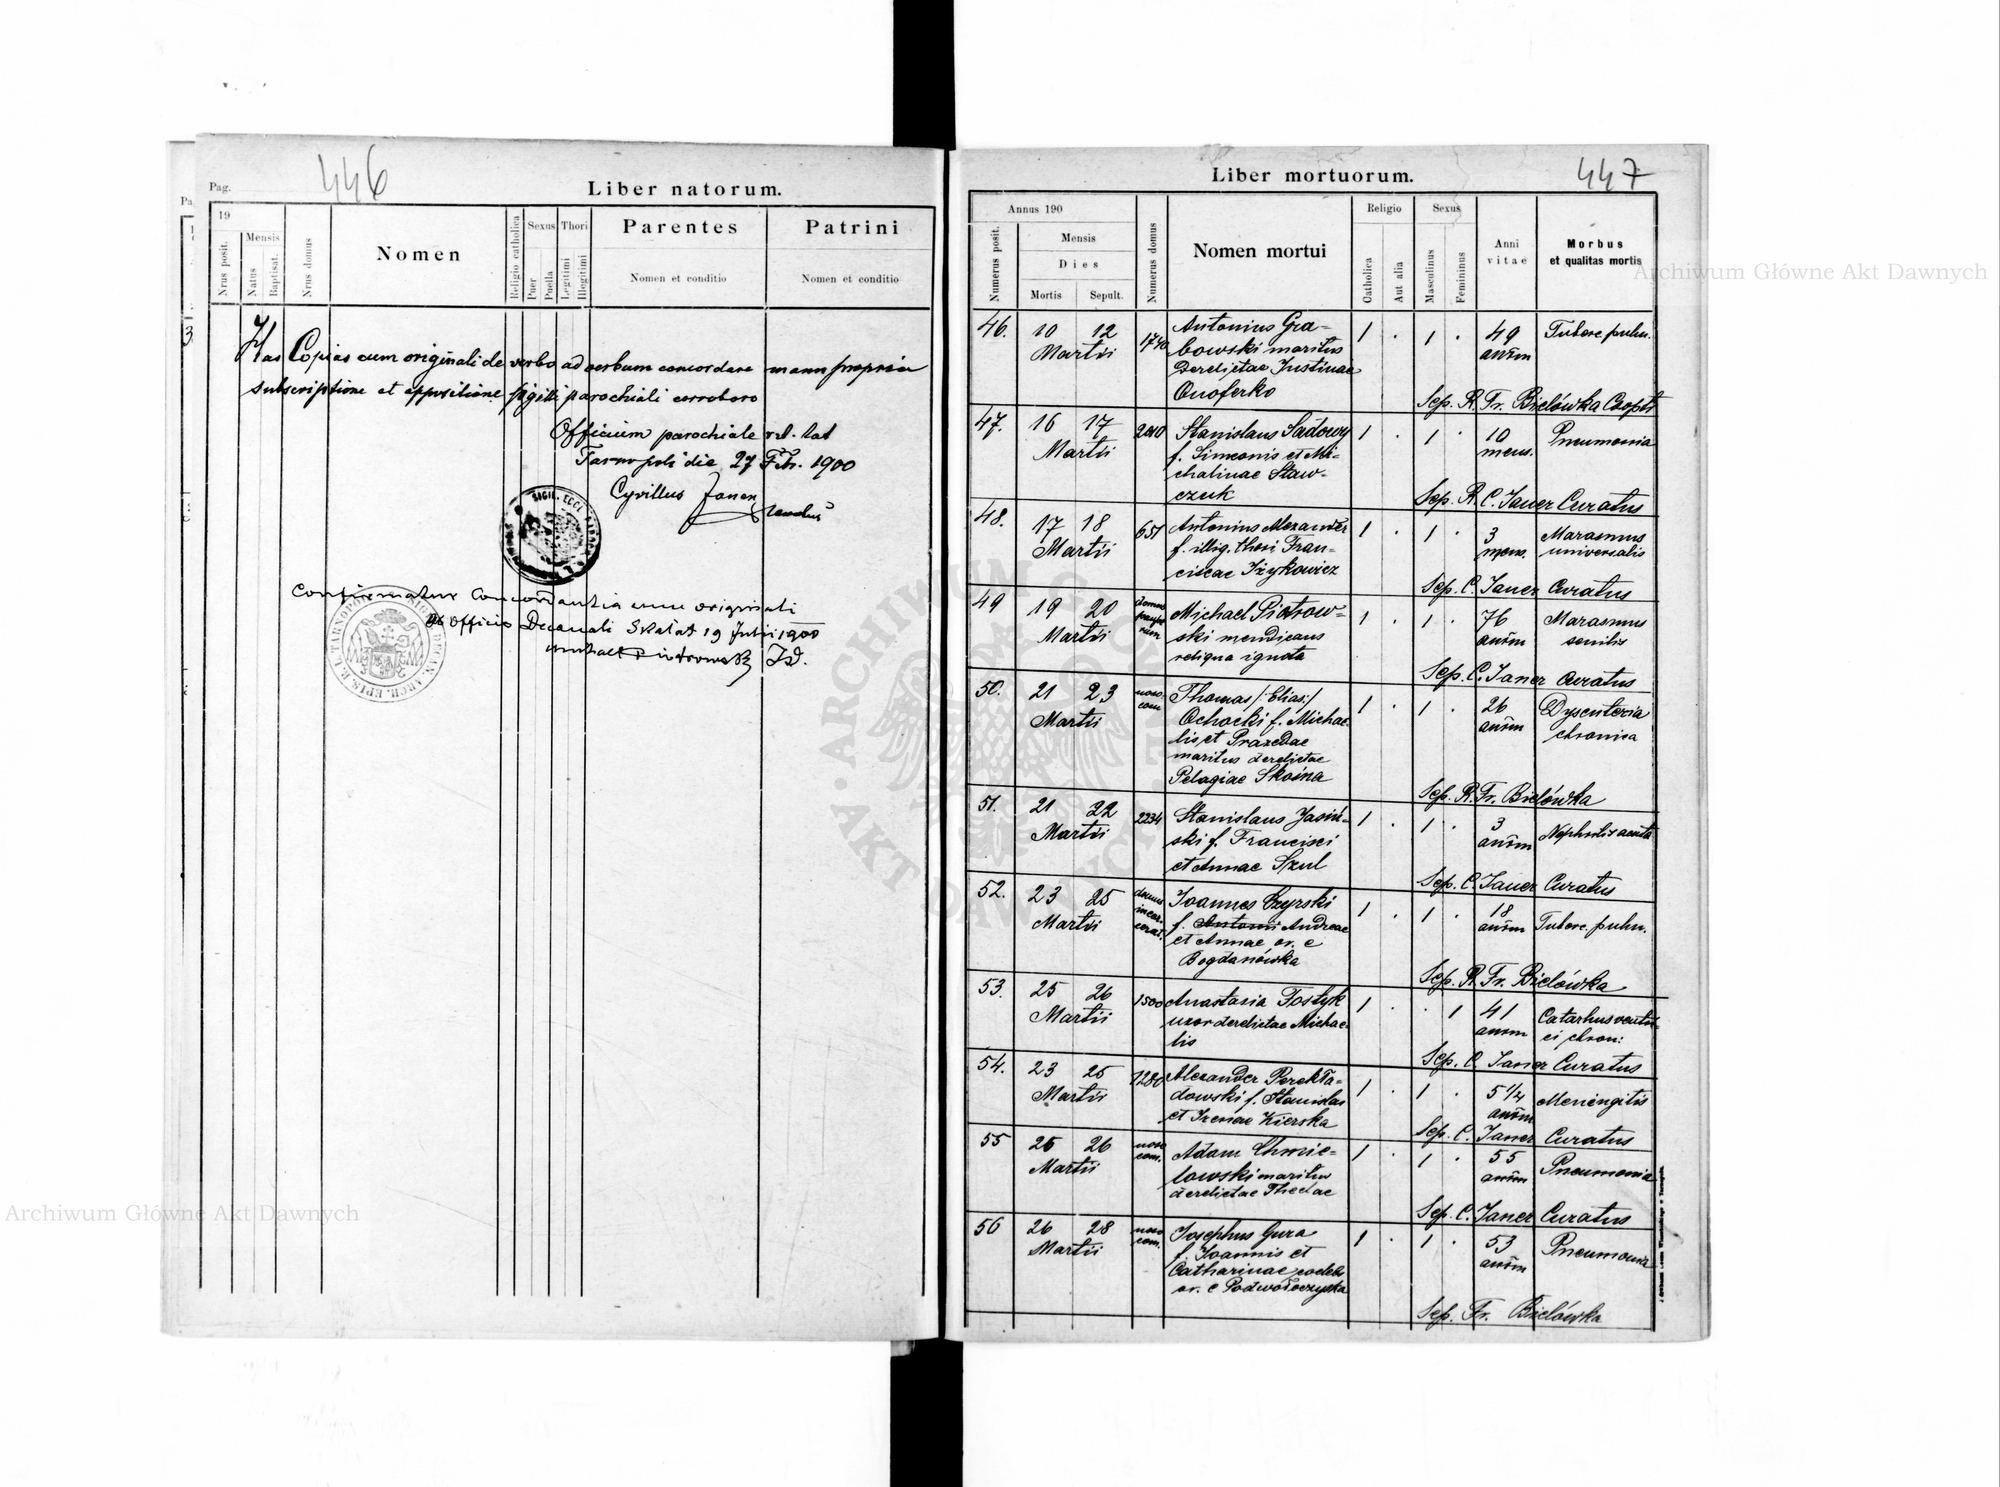 446
Pag.
Liber natorum.
19
Nrus posit.
Mensis
Natus
Baptisat.
Nrus domus
Nomen
Religio catholica
Sexus
Puer
Puella
Thori
Legitimi
Illegitimi
Parentes
Nomen et conditio
Patrini
Nomen et conditio
Has Copias cum originali de verbo ad verbum concordare manu propria
subscriptione et appositione sigilli parochiali corroboro
Officium parochiale rit. lat
Tarnopoli die 27 Feb. 1900
Cyrillus Janer
Confirmatur Concordantia cum originali
Ab Officio Decanali Skałat 19 Julii 1900
447
Liber mortuorum.
Annus 190
Numerus posit.
Mensis
Dies
Mortis
Sepult.
Numerus domus
Nomen mortui
Religio
Catholica
Aut alia
Sexus
Masculinus
Femininus
Anni
vitae
Morbus
et qualitas mortis
46. 10 12 Martii 1740 Antonius Gra- 1 . 1 . 49 annm Tuberc pulm.
bowski maritus
derelictae Justinae
Onoferko
Sep. R. Fr. Bielówka Coopt
47. 16 17 Martii 2010 Stanislaus Sadowy 1 . 1 . 10 mens. Pneumonia
f. Simeonis et Mi-
chalinae Staw-
czuk
Sep. R. C. Janer Curatus
48. 17 18 Martii 651 Antonius Alexander 1 . 1 . 3 mens. Marasmus
f. illig. thori Fran- universalis
ciscae Iżykowicz
Sep. C. Janer Curatus
49 19 20 Martii domus paupe rum Michael Piotrow- 1 . 1 . 76 annm Marasmus
ski mendicans senilis
reliqua ignota
Sep. C. Janer Curatus
50. 21 23 Martii noso com Thomas /:Elias:/ 1 . 1 . 26 annm Dysenteria
Ochocki f. Michae- chronica
lis et Praxedae
maritus derelictae
Pelagiae Skoina
Sep. R. Fr. Bielówka
51. 21 22 Martii 2234 Stanislaus Jasiń- 1 . 1 . 3 annm Nephritis acuta
ski f. Francisci
et Annae Szul
Sep. C. Janer Curatus
52. 23 25 Martii domus incar. cerat. Joannes Czyrski 1 . 1 . 18 annm Tuberc. pulm.
f. Antonii Andreae
et Annae or. e
Bogdanówka
Sep. R. Fr. Bielówka
53. 25 26 Martii 1500 Anastasia Tostyk 1 . . 1 41 annm Catarhus ventri-
uxor derelictae Michae- ci chron:
lis
Sep. C. Janer Curatus
54. 23 25 Martii 1280 Alexander Perekła- 1 . 1 . 5 1/4 annm Meningitis
dowski f. Stanislai
et Irenae Kierska
Sep. C. Janer Curatus
55 25 26 Martii noso com. Adam Chmie- 1 . 1 . 55 annm Pneumonia
lowski maritus
derelictae Theclae
Sep. C. Janer Curatus
56 26 28 Martii noso com. Josephus Gura 1 . 1 . 53 annm Pneumonia
f. Joannis et
Catharinae coelebs
or. e Podwołoczyska
Sep. Fr. Bielówka
Archiwum Główne Akt Dawnych
Archiwum Główne Akt Dawnych
ARCHIWUM GŁÓWNE AKT DAWNYCH